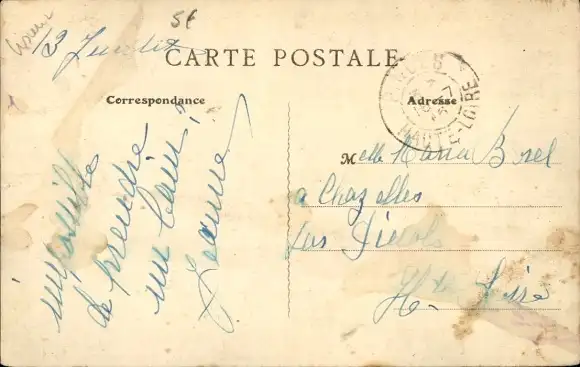 5f
13
CARTE POSTALE
Correspondance
Adresse
HAUTE-LOIRE
impossible
de prendre
un bain
Jeanne
Melle Maria Borel
a Chazelles
par
Hte Loire